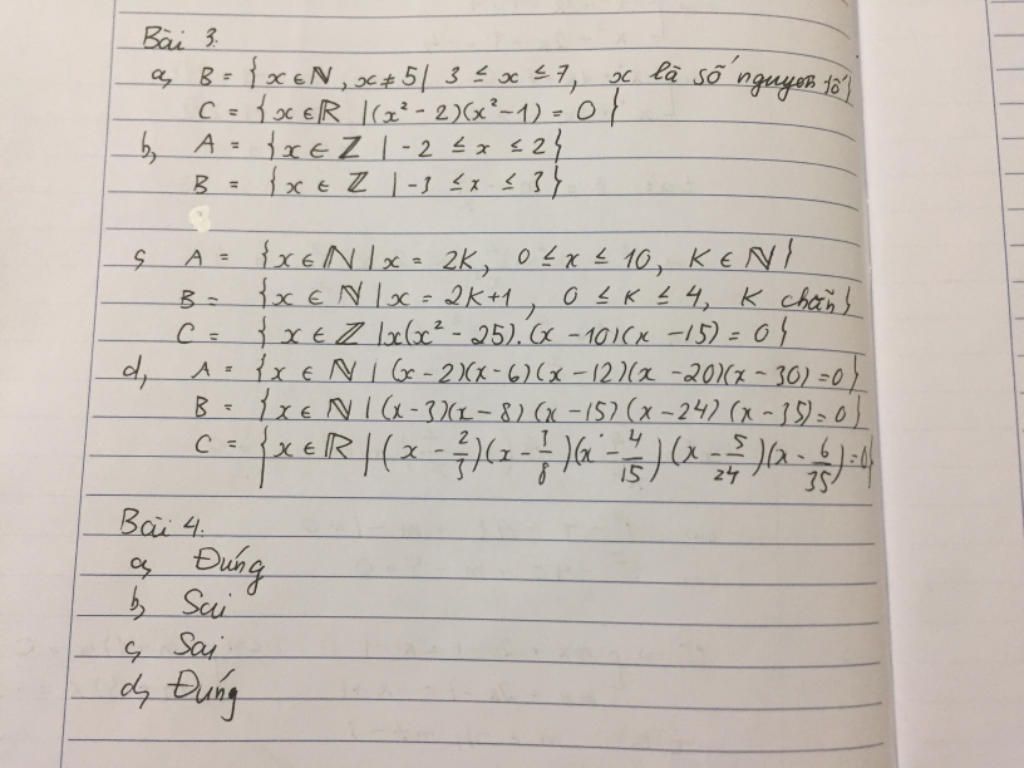 Bài 3.
a, B = {x ∈ ℕ, x ≠ 5 | 3 ≤ x ≤ 7, x là số nguyên tố}
C = {x ∈ ℝ | (x² - 2)(x² - 1) = 0}
b, A = {x ∈ ℤ | -2 ≤ x ≤ 2}
B = {x ∈ ℤ | -3 ≤ x ≤ 3}
c, A = {x ∈ ℕ | x = 2K, 0 ≤ x ≤ 10, K ∈ ℕ}
B = {x ∈ ℕ | x = 2K+1, 0 ≤ K ≤ 4, K chẵn}
C = {x ∈ ℤ | x(x² - 25).(x - 10)(x - 15) = 0}
d, A = {x ∈ ℕ | (x - 2)(x - 6)(x - 12)(x - 20)(x - 30) = 0}
B = {x ∈ ℕ | (x - 3)(x - 8)(x - 15)(x - 24)(x - 35) = 0}
C = {x ∈ ℝ | (x - 2/3)(x - 3/8)(x - 4/15)(x - 5/24)(x - 6/35) = 0}
Bài 4.
a, Đúng
b, Sai
c, Sai
d, Đúng